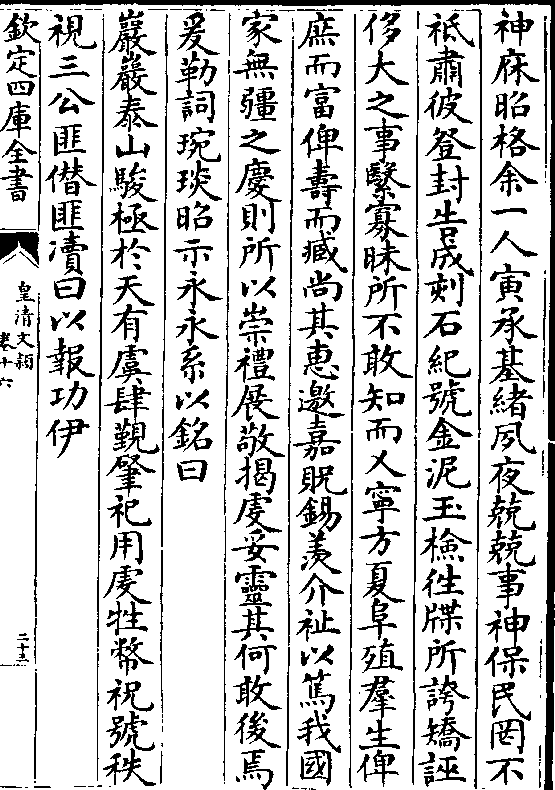 神庥昭格余一人寅承基緒夙夜兢兢事神保民罔不
祗肅彼登封告成刻石紀號金泥玉檢徃牒所誇矯誣
侈大之事繄寡昧所不敢知而乂寧方夏阜殖羣生俾
庶而富俾壽而臧尚其惠邀嘉貺錫羨介祉以篤我國
家無疆之慶則所以崇禮展敬揭虔妥靈其何敢後焉
爰勒詞琬琰昭示永永系以銘曰
巖巖泰山駿極於天有虞肆覲肇祀用虔牲幣祝號秩
視三公匪僭匪凟曰以報功伊
欽定四庫全書
皇清文穎
卷十六
二十三